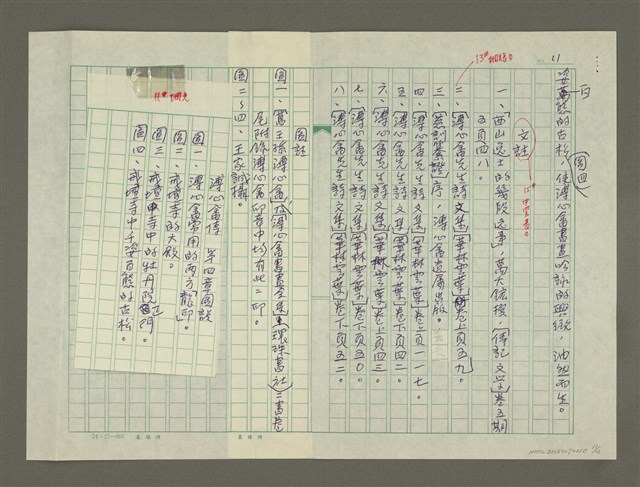 21
姿百態的古松，使溥心畬書畫吟詠的興緻，油然而生。
圖四
文註
一、「西山逸士的幾段逸事」，萬大鋐撰，「傳記文學」卷五期
五頁四八。
二、「溥心畬先生詩文集」「華林雲葉」卷上頁五九。
序，溥心畬遺屬出版。
四、「溥心畬先生詩文集」「華林雲葉」卷上頁一一七。
五、「溥心畬先生詩文集」「華林雲葉」卷下頁四二。
六、「溥心畬先生詩文集」「華林雲葉」卷下頁四三。
七、「溥心畬先生詩文集」「華林雲葉」卷下頁五〇。
八、「溥心畬先生詩文集」「華林雲葉」卷下頁五二。
圖註
圖一、「舊王孫溥心畬」「溥心畬書畫全集」（環球書社）二書卷
尾附錄溥心畬印章中均有此二印。
圖二～四、王家誠攝。
溥心畬傳 第四章圖說
圖一、溥心畬常用的兩方龍印。
圖二、戒壇寺的大殿。
圖三、戒壇寺中的牡丹院門。
圖四、戒壇寺中千姿百態的古松。